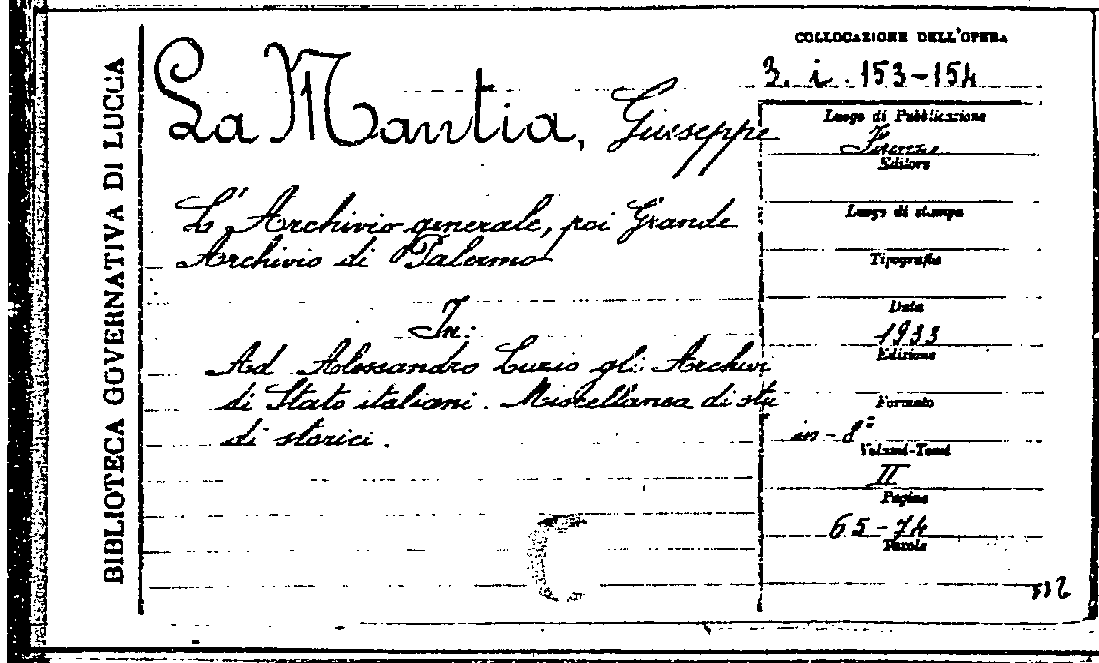 BIBLIOTECA GOVERNATIVA DI LUCCA
La Mantia, Giuseppe
L'Archivio generale, poi Grande
Archivio di Palermo
In:
Ad Alessandro Luzio gli Archivi
di Stato italiani. Miscellanea di stu
di storici.
COLLOCAZIONE DELL'OPERA
3. i. 153-154
Luogo di Pubblicazione
Firenze
Editore
Luogo di stampa
Tipografia
Data
1933
Edizione
Formato
in-8°
Volumi-Tomi
II
Pagine
65-74
Tavole